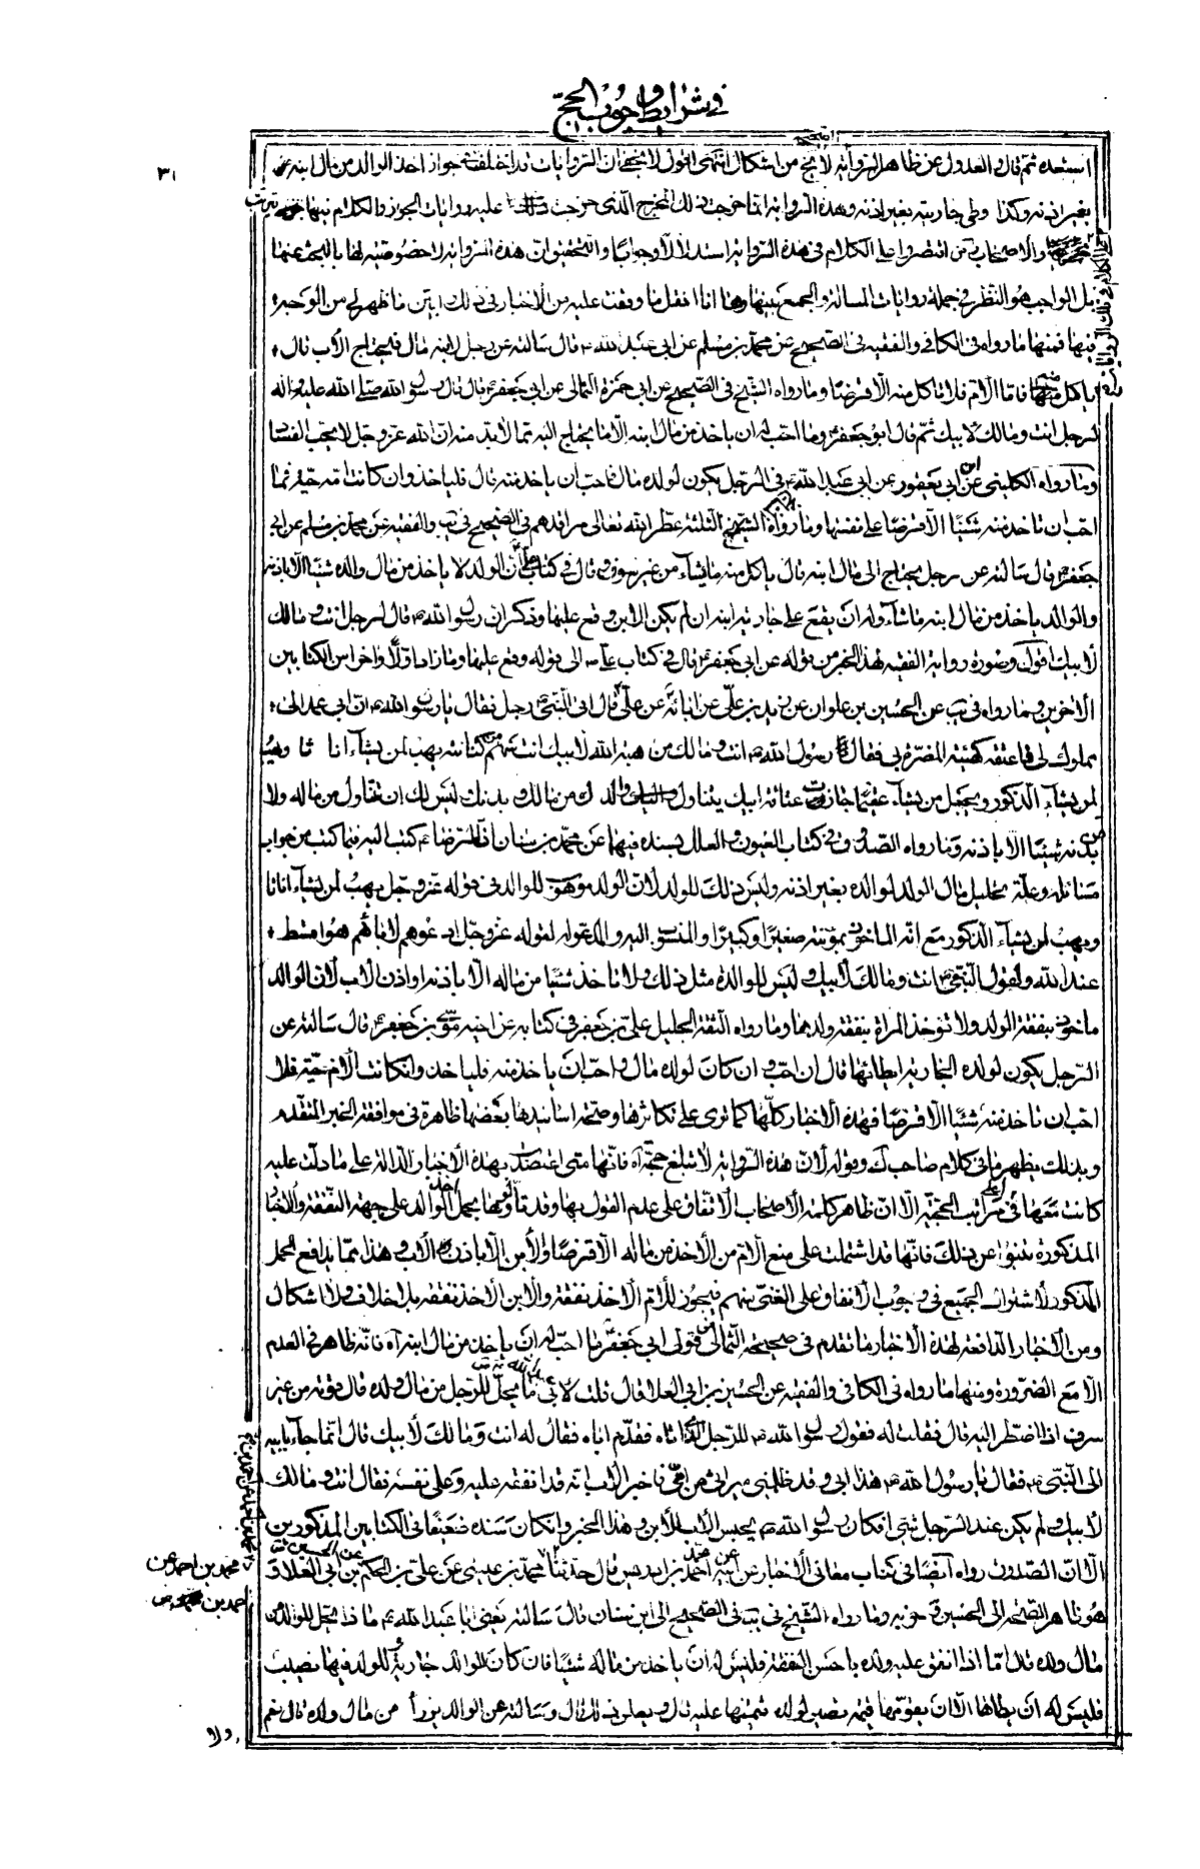 في شرايط وجوب الحج
٣١
استبعده ثم قال والعدول عن ظاهر الرواية الصحيحة لا يخ من اشكال انتهى اقول لا يخفى ان الروايات قد اختلفت في جواز اخذ الوالد من مال ابنه
بغير اذنه وكذا وطى جاريته بغير اذنه وهذه الرواية انما خرجت ذلك المخرج الذى خرجت عليه روايات الجواز والكلام فيها
والاصحاب من اقتصروا على الكلام في هذه الرواية استدلالا وجوابا والتحقيق ان هذه الرواية لا خصوصية لها بالبحث عنها
بل الواجب هو النظر في جملة روايات المسالة والجمع بينها وها انا انقل ما وقفت عليه من الاخبار في ذلك ابين ما ظهر لى من الوجه
فيها فمنها ما رواه في الكافي والفقيه في الصحيح عن محمد بن مسلم عن ابى عبد الله ع قال سالته عن رجل لابنه مال فيحتاج الاب قال
ياكل منه فاما الام فلا تاكل منه الا قرضا وما رواه الشيخ في الصحيح عن ابى حمزة الثمالى عن ابى جعفر ع قال قال رسول الله صلى الله عليه واله
لرجل انت ومالك لابيك ثم قال ابو جعفر ع وما احب له ان ياخذ من مال ابنه الا ما يحتاج اليه مما لا بد منه ان الله عز وجل لا يحب الفساد
وما رواه الكلينى عن ابن ابى يعفور عن ابى عبد الله ع في الرجل يكون لولده مال فاحب ان ياخذ منه قال فلياخذ وان كانت امه حية فما
احب ان تاخذ منه شيئا الا قرضا على نفسها وما رواه المشايخ الثلثة عطر الله تعالى مراقدهم في الصحيح في يب والفقيه عن محمد بن مسلم عن ابى
جعفر ع قال سالته عن رجل يحتاج الى مال ابنه قال ياكل منه ما يشاء من غير سرف وقال في كتاب على ع ان الولد لا ياخذ من مال والده شيئا الا باذنه
والوالد ياخذ من مال ابنه ما شاء وله ان يقع على جارية ابنه ان لم يكن الابن وقع عليها وذكر ان رسول الله ص قال لرجل انت ومالك
لابيك اقول وصورة رواية الفقيه لهذا الخبر من قوله عن ابى جعفر ع قال في كتاب على ع الى قوله وقع عليها وما زاد اولا واخرا من الكتابين
الاخرين وما رواه في يب عن الحسين بن علوان عن زيد بن على عن ابائه عن على ع قال اتى النبى ص رجل فقال يا رسول الله ص ان ابى عمد الى
مملوك لى فاعتقه كهيئة المضرة بى فقال رسول الله ص انت ومالك من هبة الله لابيك انت سهم من كنانته يهب لمن يشاء اناثا ويهب
لمن يشاء الذكور ويجعل من يشاء عقيما جازت عتاقة ابيك يتناول والدك من مالك وبدنك وليس لك ان تتناول من ماله ولا
بدنه شيئا الا باذنه وما رواه الصدوق في كتاب العيون والعلل بسنده فيها عن محمد بن سنان ان الرضا ع كتب اليه فيما كتب من جواب
مسائله وعلة تحليل مال الولد لوالده بغير اذنه وليس ذلك للولد لان الولد موهوب للوالد في قوله عز وجل يهب لمن يشاء اناثا
ويهب لمن يشاء الذكور مع انه الماخوذ بمؤنته صغيرا وكبيرا والمنسوب اليه والمدعو له لقوله عز وجل ادعوهم لابائهم هو اقسط
عند الله ولقول النبى ص انت ومالك لابيك وليس للوالدة مثل ذلك ولا تاخذ شيئا من ماله الا باذنه او اذن الاب لان الوالد
ماخوذ بنفقة الولد ولا تؤخذ المراة بنفقة ولدها وما رواه الثقة الجليل على بن جعفر في كتابه عن اخيه موسى بن جعفر ع قال سالته عن
الرجل يكون لولده الجارية ايطائها قال ان احب وان كان لولده مال واحب ان ياخذ منه فلياخذ وان كانت الام حية فلا
احب ان تاخذ منه شيئا الا قرضا فهذه الاخبار كلها كما ترى على تكاثرها وصحة اسانيدها بعضها ظاهرة في موافقة الخبر المتقدم
وبذلك يظهر ما في كلام صاحب ك وقوله لان هذه الرواية لا تبلغ حجة اه فانها متى اعتضدت بهذه الاخبار الدالة على ما دلت عليه
كانت معها في اعلى مراتب الحجية الا ان ظاهر كلمة الاصحاب الاتفاق على عدم القول بها وقد تاولوها بحمل اخذ الوالد على جهة النفقة والاخبار
المذكورة تنبو عن ذلك فانها قد اشتملت على منع الام من الاخذ من ماله الا قرضا والابن الا باذن الاب وهذا مما يدافع الحمل
المذكور لاشتراك الجميع في وجوب الانفاق على الغنى منهم فيجوز للام الاخذ نفقة والابن الاخذ نفقة بلا خلاف ولا اشكال
ومن الاخبار الدافعة لهذه الاخبار ما تقدم في صحيحة الثمالى من قول ابى جعفر ع ما احب له ان ياخذ من مال ابنه اه فانه ظاهر في العدم
الا مع الضرورة ومنها ما رواه في الكافي والفقيه عن الحسين بن ابى العلا قال قلت لابى عبد الله ع ما يحل للرجل من مال ولده قال قوته من غير
سرف اذا اضطر اليه قال فقلت له فقول رسول الله ص للرجل الذى اتاه فقدم اباه فقال له انت ومالك لابيك قال انما جاء بابيه
الى النبى ص فقال يا رسول الله ص هذا ابى وقد ظلمنى ميراثى من امى فاخبر الاب انه قد انفقه عليه وعلى نفسه فقال انت ومالك
لابيك ولم يكن عند الرجل شئ افكان رسول الله ص يحبس الاب للابن وهذا الخبر وان كان سنده ضعيفا في الكتابين المذكورين
الا ان الصدوق رواه ايضا في كتاب معانى الاخبار عن ابيه عن احمد بن ادريس قال حدثنا محمد بن عيسى عن على بن الحكم عن الحسين بن ابى العلا
محمد بن احمد عن
احمد بن
مال ولده قال اما اذا انفق عليه ولده باحسن النفقة فليس له ان ياخذ من ماله شيئا فان كان للوالد جارية للولد فيها نصيب
فليس له ان يطاها الا ان يقومها قيمة تصير لولده قيمتها عليه قال ويعلن ذلك قال وسالته عن الوالد يرزأ من مال ولده قال نعم
ولا